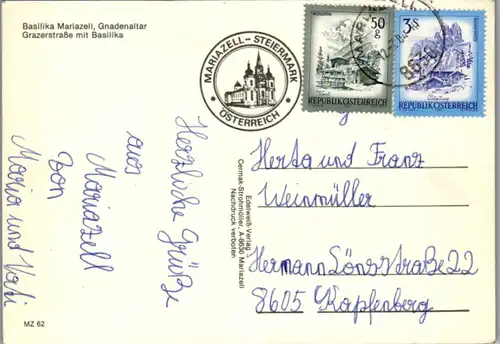 Basilika Mariazell, Gnadenaltar
Grazerstraße mit Basilika
MARIAZELL - STEIERMARK
ÖSTERREICH
50
g
REPUBLIK ÖSTERREICH
3 S
REPUBLIK ÖSTERREICH
8630
Herzliche Grüße
aus
Mariazell
von
Maria und
Edelweiß-Verlag
Cermak-Strohmüller, A-8630 Mariazell
Nachdruck verboten
Herta und Franz
Weinmüller
Hermann Lönsstraße 22
8605 Kapfenberg
MZ 62